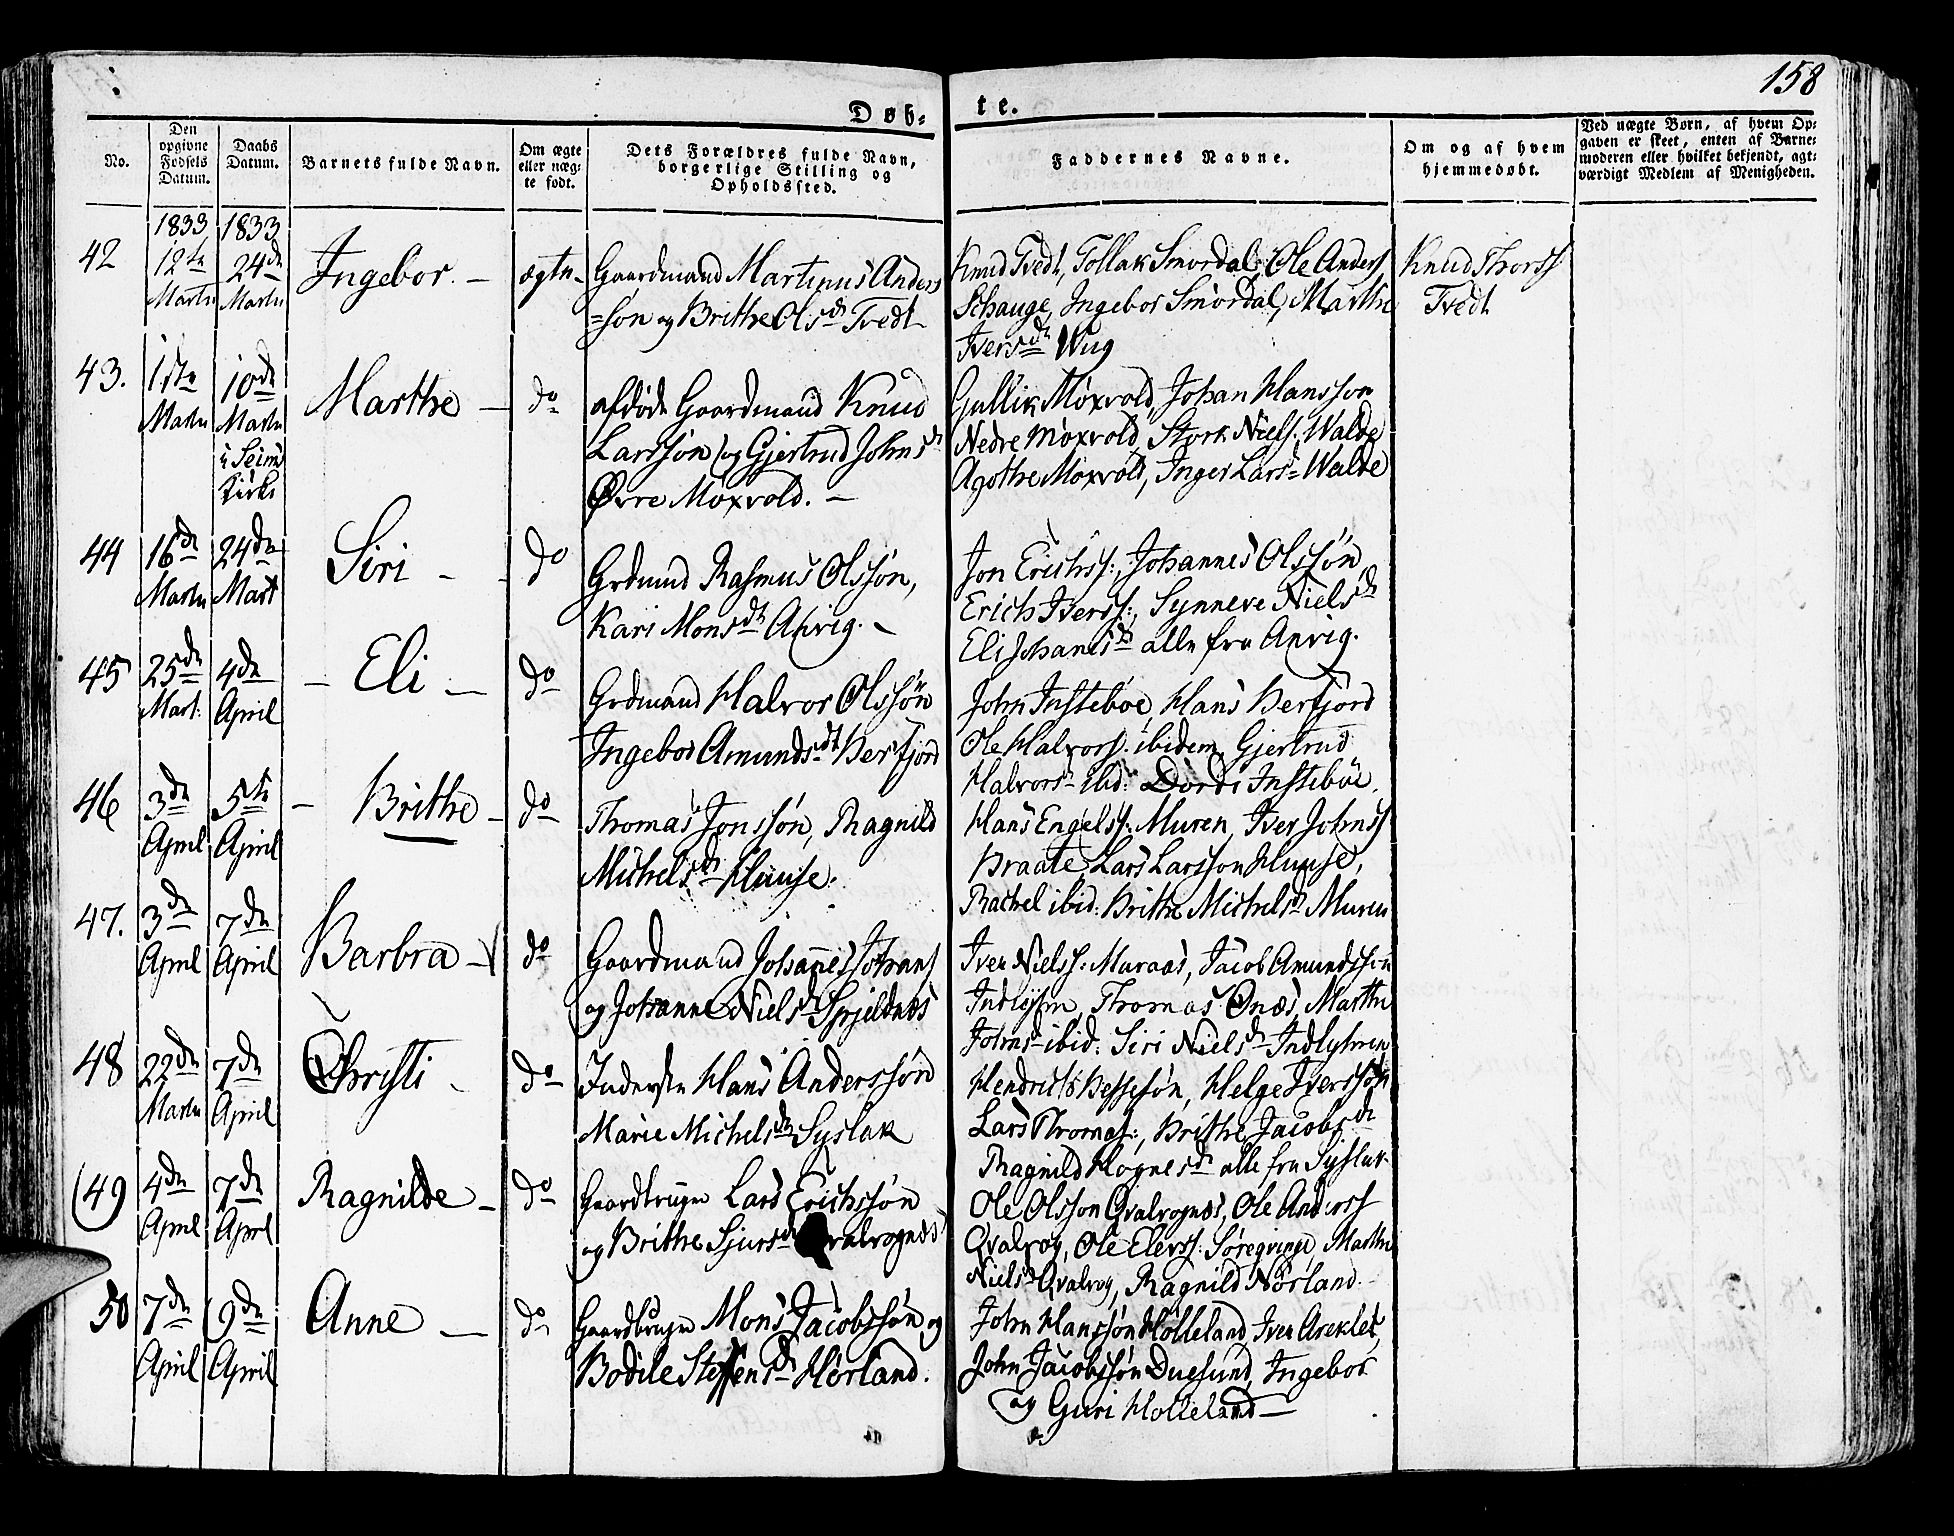 158
Døb-
te.
No.
Den opgivne Fødsels Datum.
Daabs Datum.
Barnets fulde Navn.
Om ægte eller næg- te født.
Dets Forældres fulde Navn, borgerlige Stilling og Opholdssted.
Faddernes Navne.
Om og af hvem hjemmedøbt.
Ved uægte Børn, af hvem Op- gaven er skeet, enten af Barne- moderen eller hvilket bekjendt, agt- værdigt Medlem af Menigheden.
1833 1833
42 12te Marts 24de Marts Ingebor. - ægte
Gaardmand Martinus Anders
=søn og Brithe Olsdt Tvedt
Knud Tvedt, Tollak Smørdal, Ole Anders
Schauge, Ingebor Smørdal, Marthe
Iversdt Wug
Knud Thorss
Tvedt
43. 1ste Marts 10de Marts i Seims Kirke Marthe - do
afdøde Gaardmand Knud
Larssøn og Gjertrud Johnsdt
Øvre Moxvold. -
Gullik Moxvold, Johan Hansson
Nedre Moxvold, Stork Niels. Walde
Agothe Moxvold, Inger Lars= Walde
44 16de Marts 24de Mart Siri - do
Grdmnd Rasmus Olssøn,
Kari Monsdt Anvig. -
Jon Erichss:, Johannes Olssøn,
Erich Iverss:, Synneve Nielsdt
Eli Johansdt alle fra Anvig.
45 25de Mart: 4de April - Eli - do
Grdmand Halvor Olssøn
Ingebor Amundsdt Herfjord
John Instebøe, Hans Herfjord
Ole Halvorss. ibidem, Gjertrud
Halvorsdt ibid: Dorde Instebøe.
46 3de April 5te April - Brithe - do
Thomas Jonssøn, Ragnild
Michelsdt Huuse.
Hans Engelss: Muren, Iver Johnss
Braate, Lars Larsson Huuse,
Rachel ibid: Brithe Michelsdt Muren
47. 3de April 7de April Barbra - do
Gaardmand Johanes Johans
og Johanne Nielsdt Spjeldnæs
Iver Nielss: Muraas, Jacob Amundssøn
Thomas Onæs, Marthe
Johnsdt ibid: Siri Nielsdt
48 22de Marts 7de April Christi - do
Inderste Hans Anderssøn
Marie Michelsdt Syslak
Hendrich Hessesøn, Helge Iverssøn
Lars Thomas:, Brithe Jacobsdt
Ragnild Hognesdt alle fra Syslak
49 4de April 7de April Ragnilde - do
Gaardbruger Lars Erichssøn
og Brithe Sjursdt
Ole Olsson Qvalvognæs, Ole Anderss
Qvalvog, Ole Elerss: Søreqvinge, Marthe
Nielsdt Qvalvog, Ragnild Nørland. -
50 7de April 9de April Anne - do
Gaardbruger Mons Jacobssøn og
Bodile Steffensdt Hørland.
John Hanssøn Holleland, Iver Areklet,
John Jacobssøn Duesund, Ingebor
og Guri Holleland -